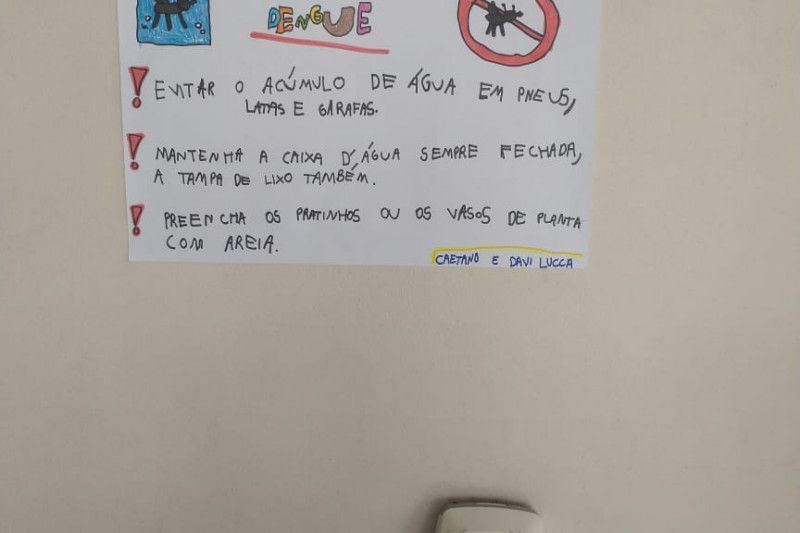 DENGUE
EVITAR O ACÚMULO DE ÁGUA EM PNEUS,
LATAS E GARAFAS.
MANTENHA A CAIXA D'ÁGUA SEMPRE FECHADA,
A TAMPA DE LIXO TAMBÉM.
PREENCHA OS PRATINHOS OU OS VASOS DE PLANTA
COM AREIA.
CAETANO E DAVI LUCCA